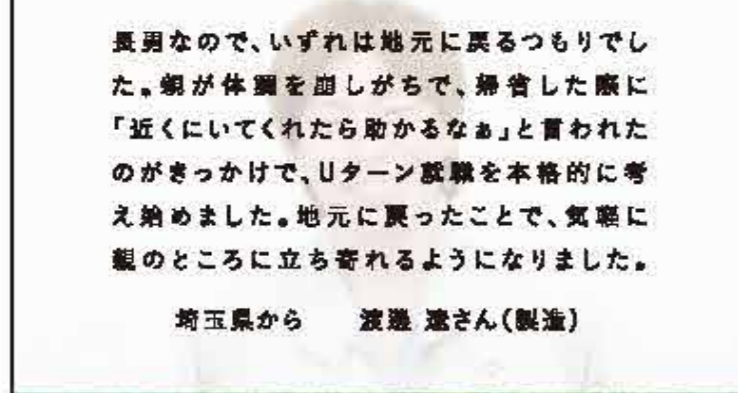 長男なので、いずれは地元に戻るつもりでし
た。親が体調を崩しがちで、帰省した際に
「近くにいてくれたら助かるなぁ」と言われた
のがきっかけで、Uターン就職を本格的に考
え始めました。地元に戻ったことで、気軽に
親のところに立ち寄れるようになりました。
埼玉県から 渡邊 さん(製造)